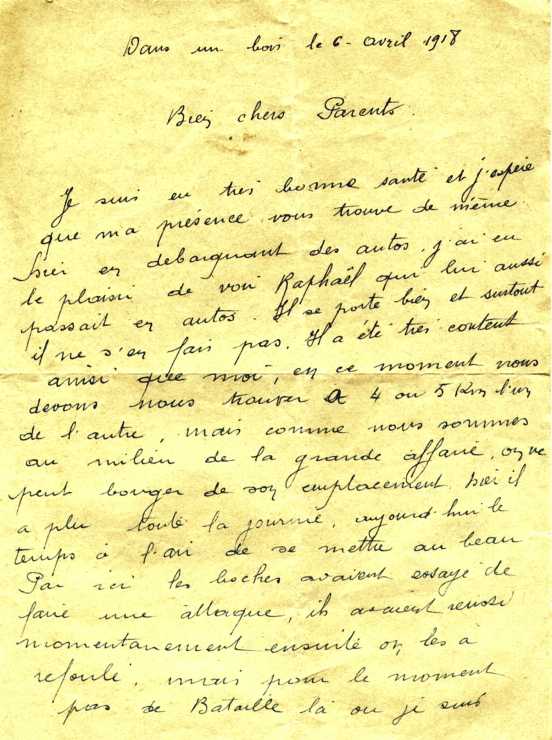 Dans un bois le 6 - avril 1918
Bien chers Parents.
Je suis en très bonne santé et j'espère
que ma présence vous trouve de même.
hier en debarquant des autos, j'ai eu
le plaisir de voir Raphaël qui lui aussi
passait en autos. Il se porte bien et surtout
il ne s'en fais pas. Il a été très content
ainsi que moi, en ce moment nous
devons nous trouver a 4 ou 5 Km l'un
de l'autre, mais comme nous sommes
au milieu de la grande affaire, on ne
peut bouger de son emplacement. hier il
a plu toute la journée, aujourd'hui le
temps à l'air de se mettre au beau
Par ici les boches avaient essayé de
faire une attaque, ils avaient reussi
momentanement ensuite on les à
refoulé, mais pour le moment
pas de Bataille là ou je suis